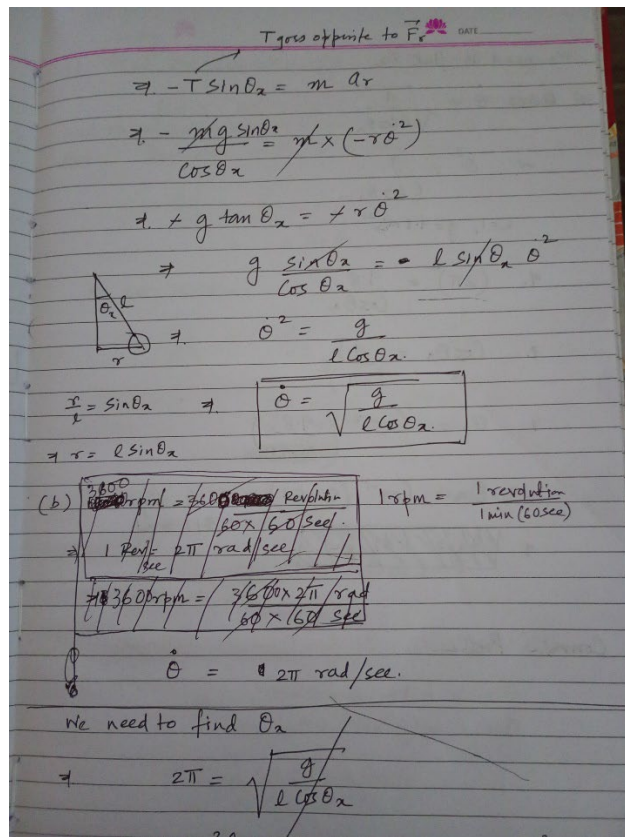 T goes opposite to F⃗r DATE
⇒. -T sinθx = m ar
⇒. - mg sinθx / cosθx = m × (-rθ̇²)
⇒. + g tan θx = + r θ̇²
⇒ g sinθx / cosθx = l sinθx θ̇²
θx l r
⇒. θ̇² = g / l cosθx.
r/l = sinθx ⇒. θ̇ = √(g / l cosθx.)
⇒ r = l sinθx
(b) 3600 rpm = 3600 Revolution / 60 × 60 sec. 1 rpm = 1 revolution / 1 min (60sec)
⇒ 1 Rev/sec = 2π rad/sec
⇒ 3600rpm = 3600 × 2π rad / 60 × 60 sec
θ̇ = 2π rad/sec.
We need to find θx
⇒ 2π = √(g / l cosθx)